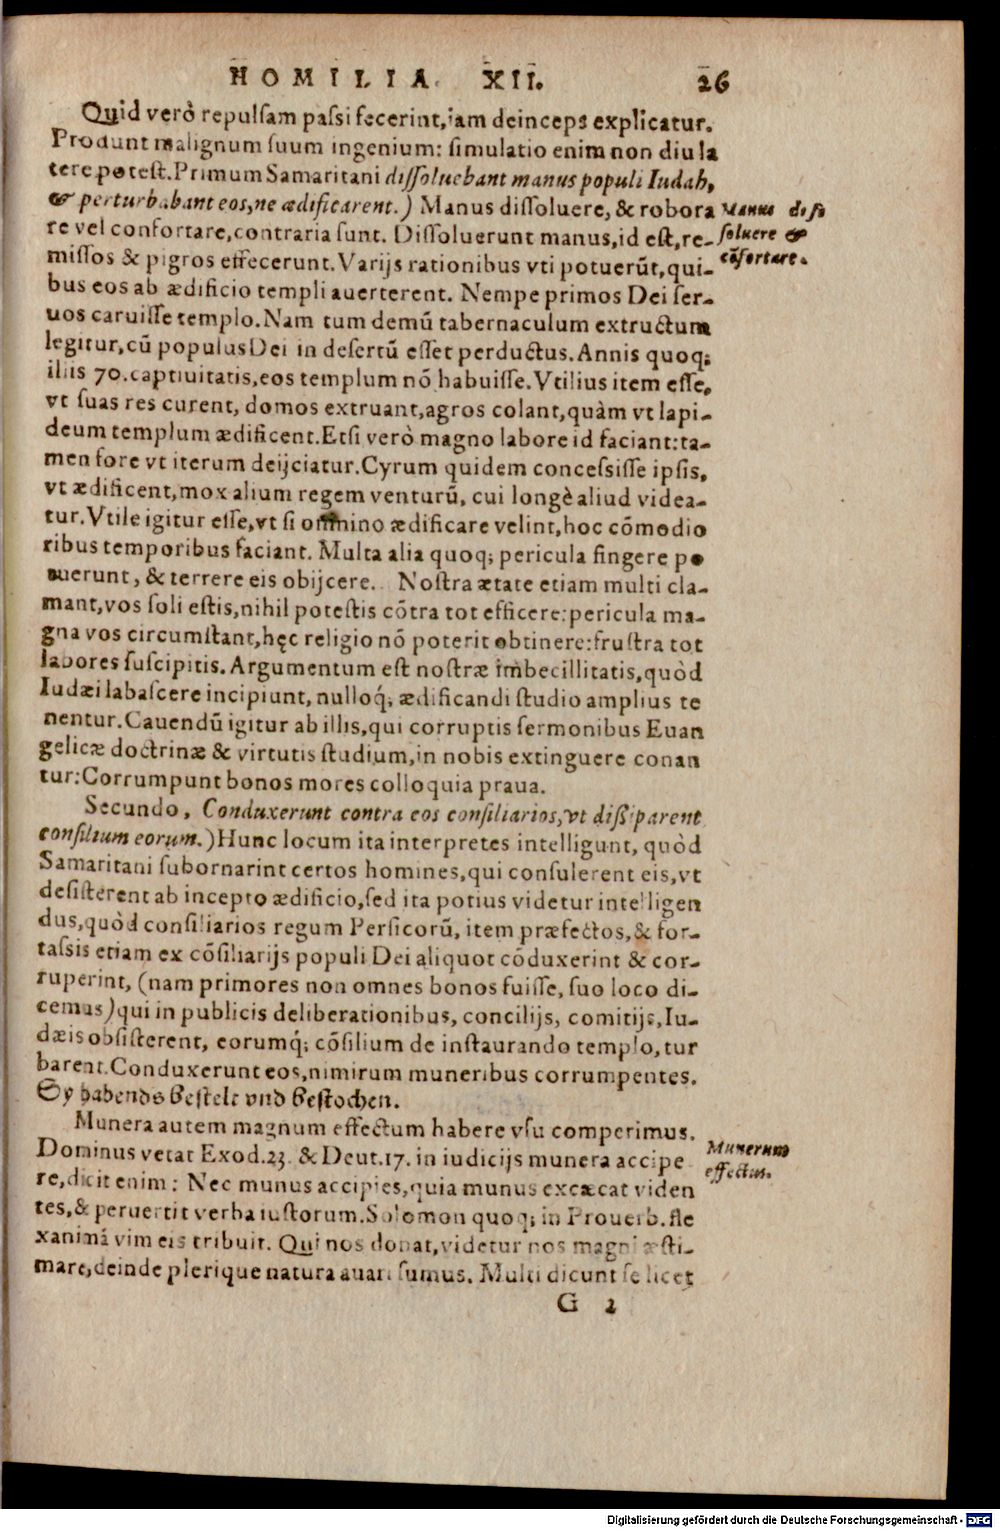 HOMILIA XII. 26
Quid verò repulsam passi fecerint, iam deinceps explicatur.
Produnt malignum suum ingenium: simulatio enim non diu la
tere potest. Primum Samaritani dissoluebant manus populi Iudah,
& perturbabant eos, ne ædificarent.) Manus dissoluere, & robora
re vel confortare, contraria sunt. Dissoluerunt manus, id est, re-
missos & pigros effecerunt. Varijs rationibus vti potuerūt, qui-
bus eos ab ædificio templi auerterent. Nempe primos Dei ser-
uos caruisse templo. Nam tum demū tabernaculum extructum
legitur, cū populus Dei in desertū esset perductus. Annis quoq;
illis 70. captiuitatis, eos templum nō habuisse. Vtilius item esse,
vt suas res curent, domos extruant, agros colant, quàm vt lapi-
deum templum ædificent. Etsi verò magno labore id faciant: ta-
men fore vt iterum deijciatur. Cyrum quidem concessisse ipsis,
vt ædificent, mox alium regem venturū, cui longè aliud videa-
tur. Vtile igitur esse, vt si omnino ædificare velint, hoc cōmodio
ribus temporibus faciant. Multa alia quoq; pericula fingere po
tuerunt, & terrere eis obijcere. Nostra ætate etiam multi cla-
mant, vos soli estis, nihil potestis cōtra tot efficere: pericula ma-
gna vos circumstant, hęc religio nō poterit obtinere: frustra tot
labores suscipitis. Argumentum est nostræ imbecillitatis, quòd
Iudæi labascere incipiunt, nulloq́; ædificandi studio amplius te
nentur. Cauendū igitur ab illis, qui corruptis sermonibus Euan
gelicæ doctrinæ & virtutis studium, in nobis extinguere conan
tur: Corrumpunt bonos mores colloquia praua.
Secundo, Conduxerunt contra eos consiliarios, vt dissiparent
consilium eorum.) Hunc locum ita interpretes intelligunt, quòd
Samaritani subornarint certos homines, qui consulerent eis, vt
desisterent ab incepto ædificio, sed ita potius videtur intelligen
dus, quòd consiliarios regum Persicorū, item præfectos, & for-
tassis etiam ex cōsiliarijs populi Dei aliquot cōduxerint & cor-
ruperint, (nam primores non omnes bonos fuisse, suo loco di-
cemus) qui in publicis deliberationibus, concilijs, comitijs, Iu-
dæis obsisterent, eorumq́; cōsilium de instaurando templo, tur
barent. Conduxerunt eos, nimirum muneribus corrumpentes.
Sy habends bestelt vnd bestochen.
Munera autem magnum effectum habere vsu comperimus.
Dominus vetat Exod. 23. & Deut. 17. in iudicijs munera accipe
re, dicit enim: Nec munus accipies, quia munus excæcat viden
tes, & peruertit verba iustorum. Solomon quoq; in Prouerb. fle
xanimā vim eis tribuit. Qui nos donat, videtur nos magni æsti-
mare, deinde plerique natura auari sumus. Multi dicunt se licet
G 2
Manus dis
soluere &
cōfortare.
Munerum
effectus.
Digitalisierung gefördert durch die Deutsche Forschungsgemeinschaft - DFG